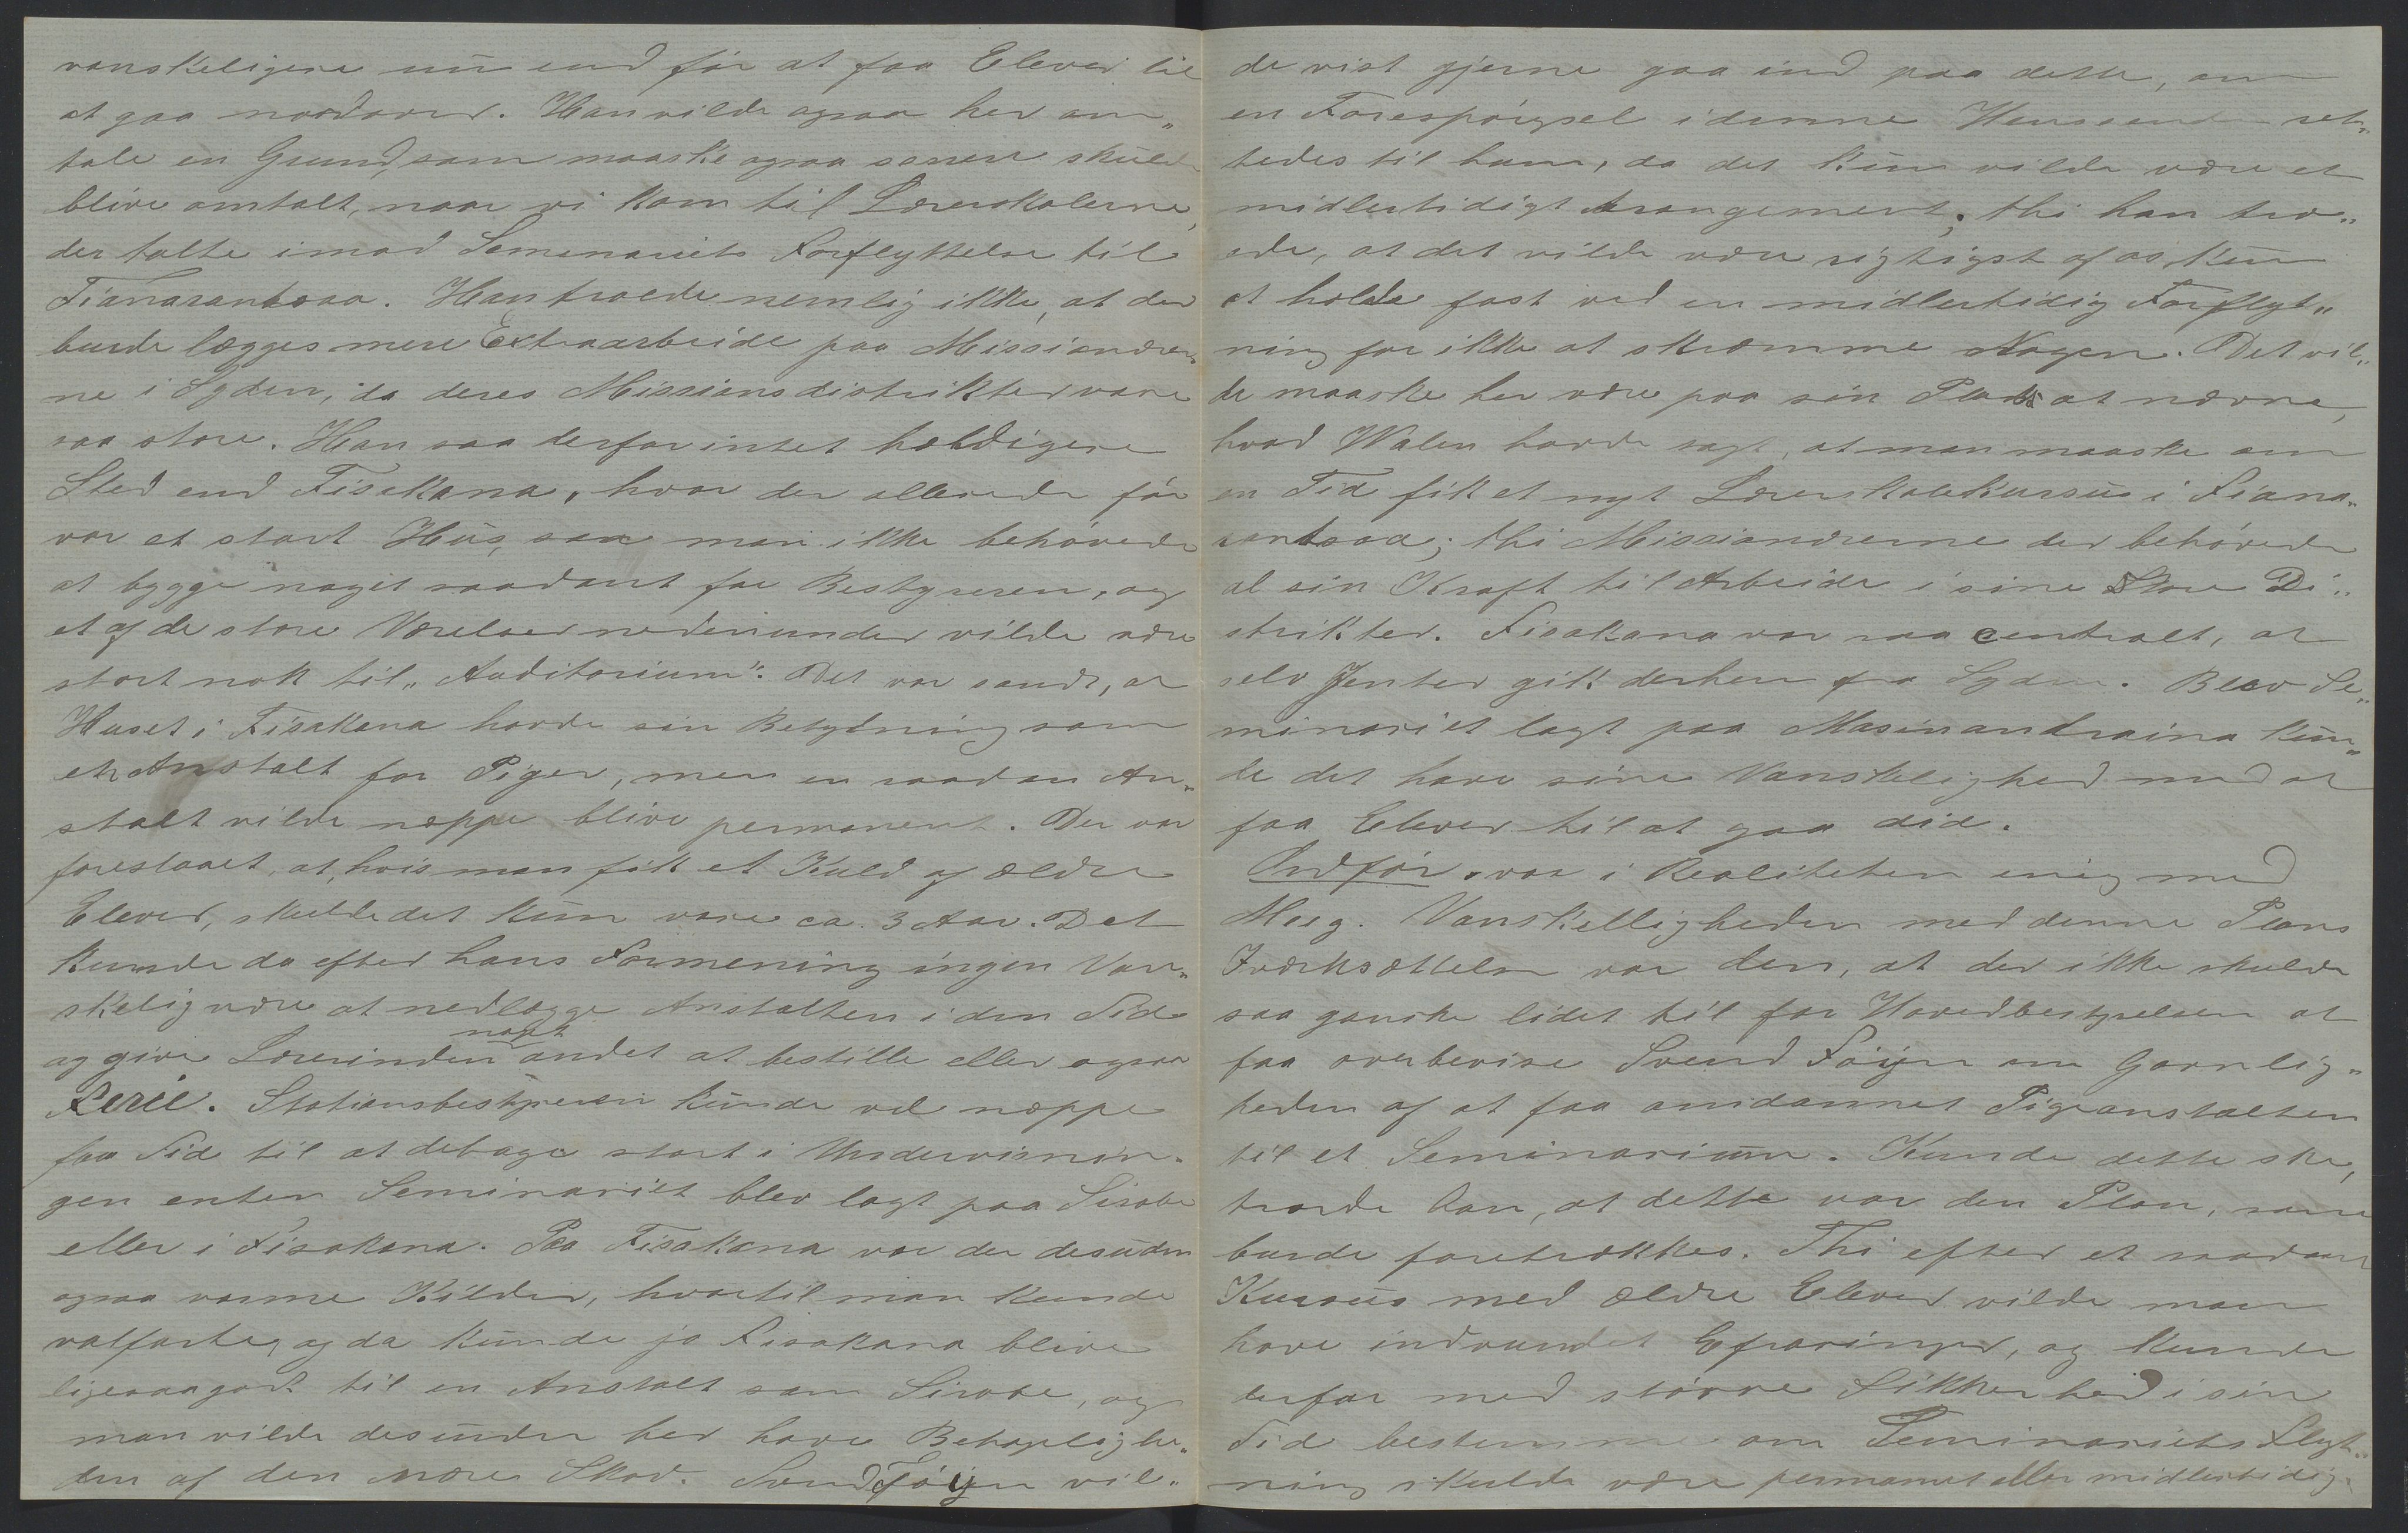 vanskeligere nu end før at faa Elever til
at gaa nordover. Han vilde ogsaa her om„
tale en Grund, som maaske ogsaa senere skulde
blive omtalt, naar vi kom til Lærerskolerne,
der talte imod Semenariets Forflyttelse til
Fianarantsoa. Han troede nemlig ikke, at der
burde lægges mere Extraarbeide paa Missionærer„
ne i Syden, da deres Missionsdistrikter vare
saa store. Han saa derfor intet heldigere
Sted end Fisakana, hvor der allerede før
var et stort Hus, saa man ikke behøvede
at bygge noget saadant for Bestyreren, og
et af de store Værelser nedenunder vilde være
stort nok til „Auditorium“. Det var sandt, at
Huset i Fisakana havde sin Betydning som
en Anstalt for Piger, men en saadan An„
stalt vilde neppe blive permanent. Der var
foreslaaet, at, hvis man fik et Kuld af ældre
Elever, skulde det kun vare ca. 3 Aar. Det
kunde da efter hans Formening ingen Van„
skelig være at nedlægge Anstalten i den Tid
og give Lærerinden noget andet at bestille eller ogsaa
Ferie. Stationsbestyreren kunde vel neppe
faa Tid til at deltage stort i Undervisnin„
gen enten Seminariet blev lagt paa Sirabe
eller i Fisakana. Paa Fisakana var der desuden
ogsaa varme Kilder, hvortil man kunde
valfarte, og da kunde jo Fisakana blive
ligesaagodt til en Anstalt som Sirabe, og
man vilde desuden her have Behagelighe„
den af den nære Skov. Svend Føyn vil„
de vist gjerne gaa ind paa dette, om
en Forespørgsel i denne Henseende ret„
tedes til ham, da det kun vilde være et
midlertidigt Arrangement; thi han tro„
ede, at det vilde være rigtigst af os kun
at holde fast ved en midlertidig Forflyt„
ning for ikke at skræmme Nogen. Det vil„
de maaske her være paa sin Plads at nævne,
hvad Walen havde sagt, at man maaske om
en Tid fik et nyt Lærerskolekursus i Fiana„
rantsoa; thi Missionærerne der behøvede
al sin Kraft til Arbeide i sine store Di„
strikter. Fisakana var saa centralt, at
selv Jenter gik derhen fra Syden. Blev Se„
minariet lagt paa Masinandraina kun„
de det have sine Vanskelighed med at
faa Elever til at gaa did.
Ordfør. var i Realiteten enig med
Meeg. Vanskelligheden med denne Plans
Iværksættelse var den, at der ikke skulde
saa ganske lidet til for Hovedbestyrelsen at
faa overbevise Svend Føyn om Gavnlig„
heden af at faa omdannet Pigeanstalten
til et Seminarium. Kunde dette ske,
troede han, at dette var den Plan, som
burde foretrækkes. Thi efter et saadant
Kursus med ældre Elever vilde man
have indvundet Erfaringer, og kunde
derfor med større Sikkerhed i sin
Tid bestemme om Seminariets Flyt„
ning skulde være permanent eller midlertidig.